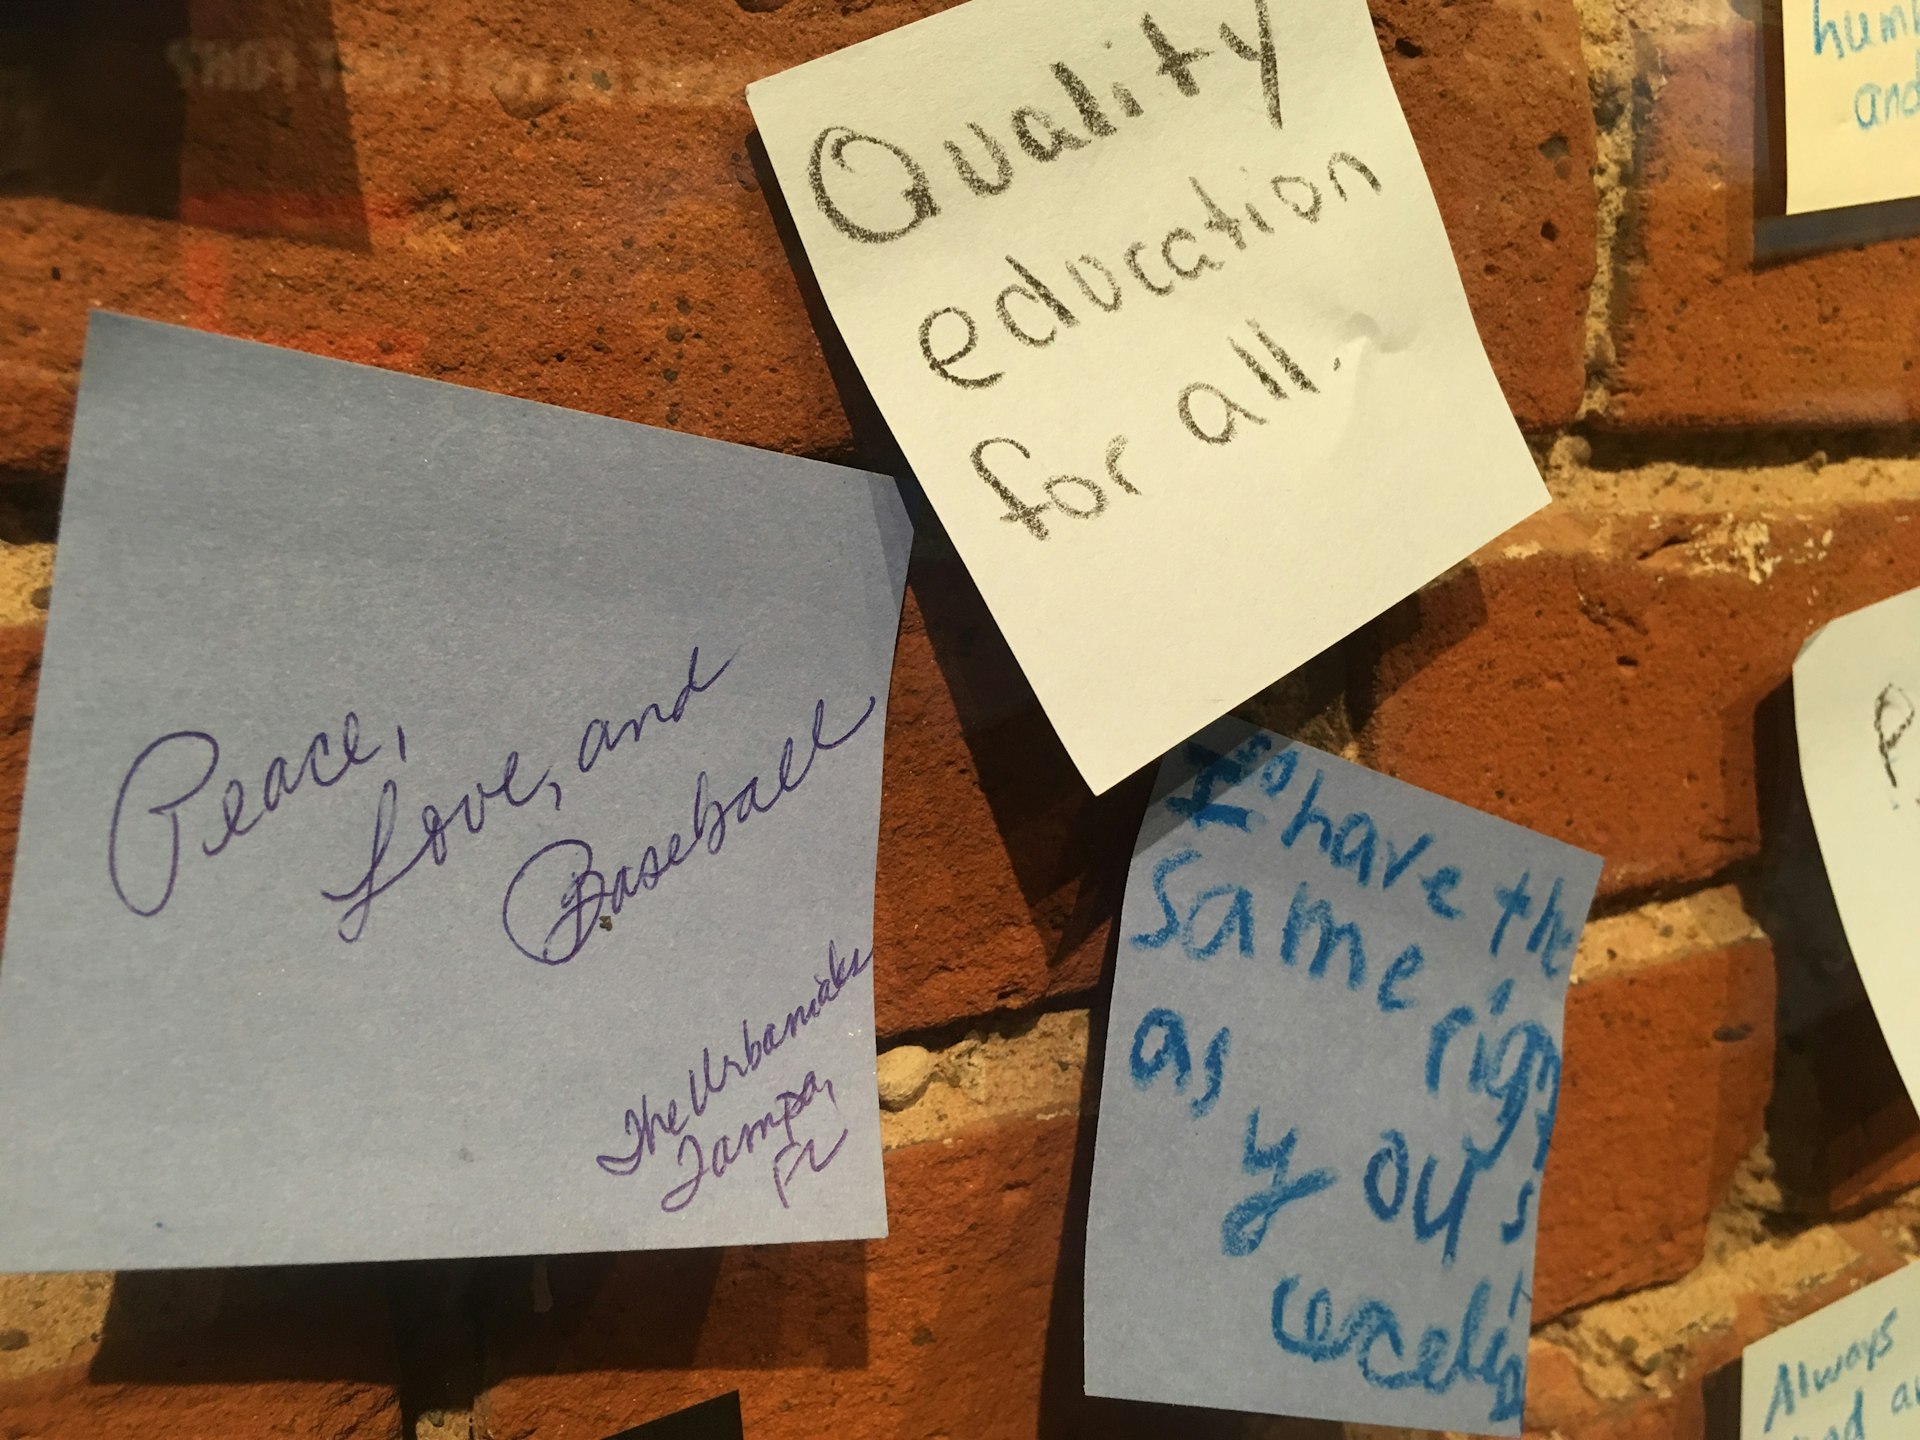 Quality
education
for all.
Peace,
Love, and
Baseball
The Urbaniaks
Tampa,
FL
I have the
same
righ
as you
hum
and
P
Always